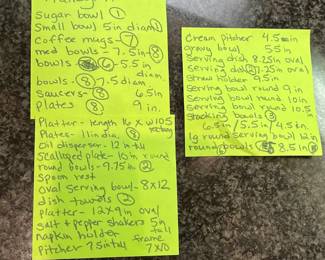 Sugar bowl ①
Small bowl 5in diam ①
Coffee mugs - ⑦
med bowls - 7.5in ⑧
bowls ⑥ - 5.5in diam
bowls - ⑧ 7.5 diam
Saucers - ⑧ 6.5in
plates ⑧ 9 in.
Platter - length 16 x W10.5
Plates - 11in dia. ⑧
Oil dispenser - 12 in tall
Scalloped plate - 10in round
round bowls - 9.75in ②
Spoon rest
Oval serving bowl - 8x12
dish towels ②
platter - 12x9in oval
Salt + pepper shakers 5in tall
napkin holder frame
Pitcher 7.5in tall 7x10
Cream pitcher 4.5in
gravy bowl 5.5in
Serving dish 8.25in oval
Serving dish 7.25in oval
Straw holder 9.5in
Serving bowl round 9in
Serving bowl round 10in
Serving bowl round 10.5in
Stacking bowls ③
6.5in / 5.5in / 4.5in
lg round serving bowl 12in
round bowls 8.5in